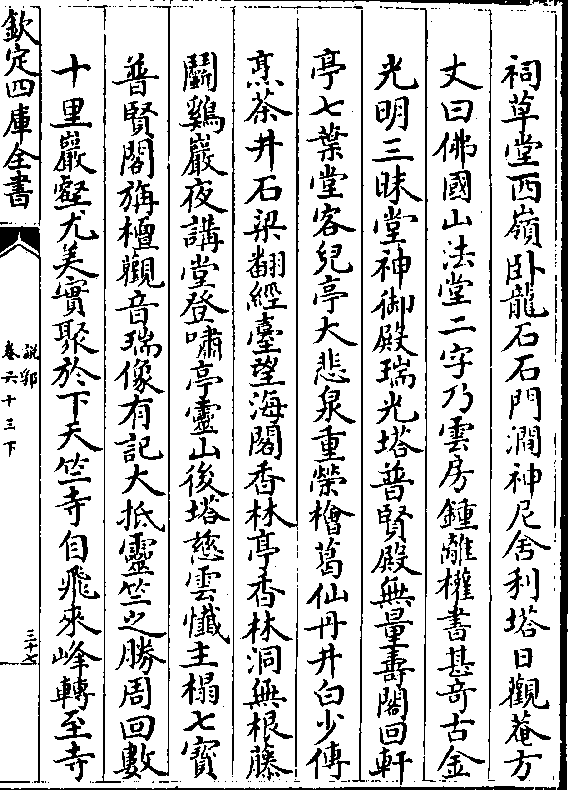 祠草堂西嶺卧龍石石門澗神尼舍利塔日觀菴方
丈曰佛國山法堂二字乃雲房鍾離權書甚竒古金
光明三昧堂神御殿瑞光塔普賢殿無量壽閣回軒
亭七葉堂客兒亭大悲泉重榮檜葛仙丹井白少傅
烹茶井石梁翻經臺望海閣香林亭香林洞無根藤
鬭鷄巖夜講堂登嘯亭靈山後塔慈雲懺主榻七寶
普賢閣旃檀觀音瑞像有記大抵靈竺之勝周回數
十里巖壑尤美實聚於下天竺寺自飛來峰轉至寺
欽定四庫全書
說郛
卷六十三下
三十七